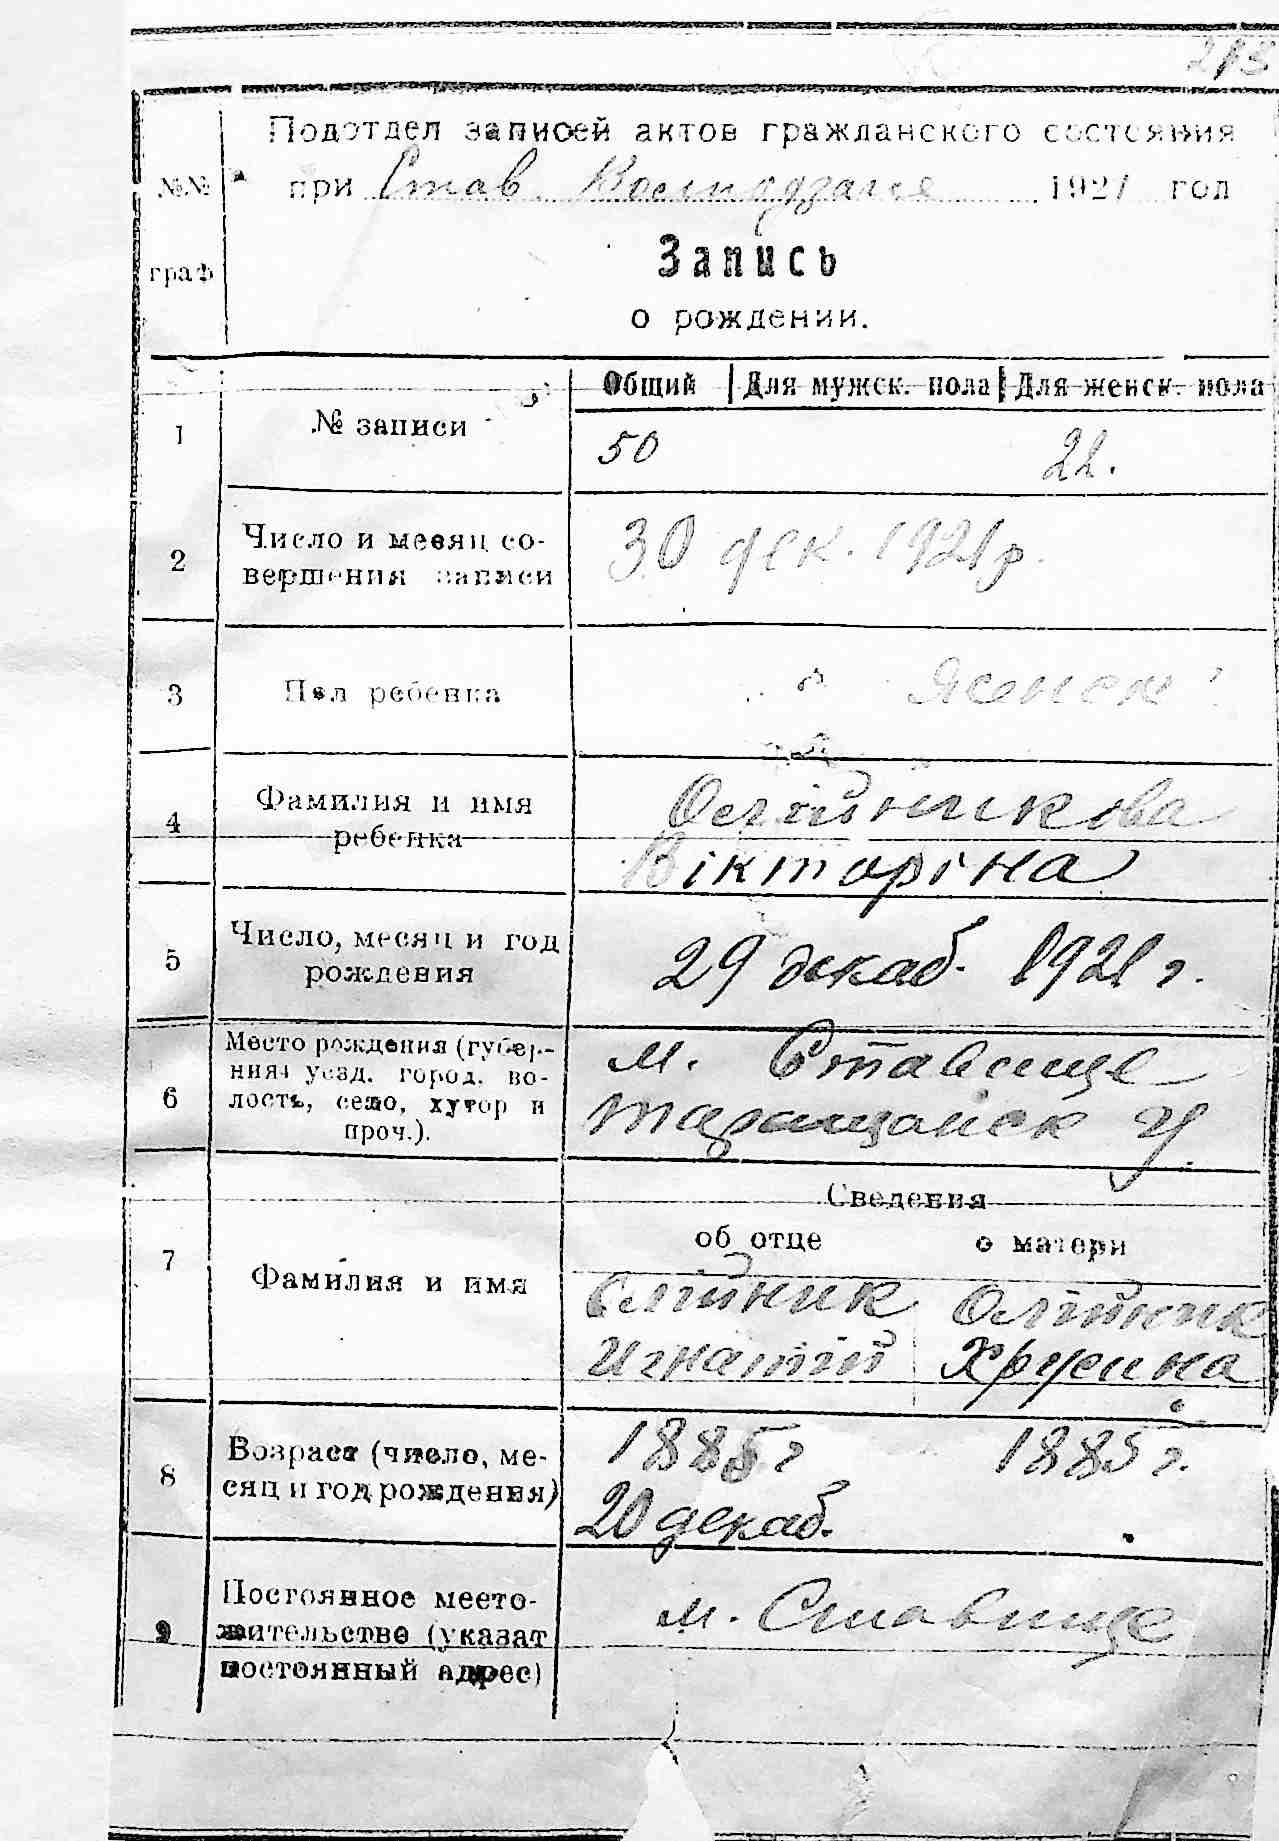 Подотдел записей актов гражданского состояния
№№ при Став. 1921 год
граф
Запись
о рождении.
Общий Для мужск. пола Для женск. пола
1 № записи 50 22.
2 Число и месяц со-
вершения записи 30 дек. 1921 р.
3 Пол ребенка женск
4 Фамилия и имя
ребенка Олійникова
Вікторіна
5 Число, месяц и год
рождения 29 декаб. 1921 г.
6 Место рождения (губер-
ния, уезд, город, во-
лость, село, хутор и
проч.). м. Ставище
Таращанск у
Сведения
об отце о матери
7 Фамилия и имя
Олійник Олійник
Игнатій
8 Возраст (число, ме-
сяц и год рождения) 1885 г 1885 г.
20 декаб.
9 Постоянное место-
жительство (указат
постоянный адрес) м. Ставище